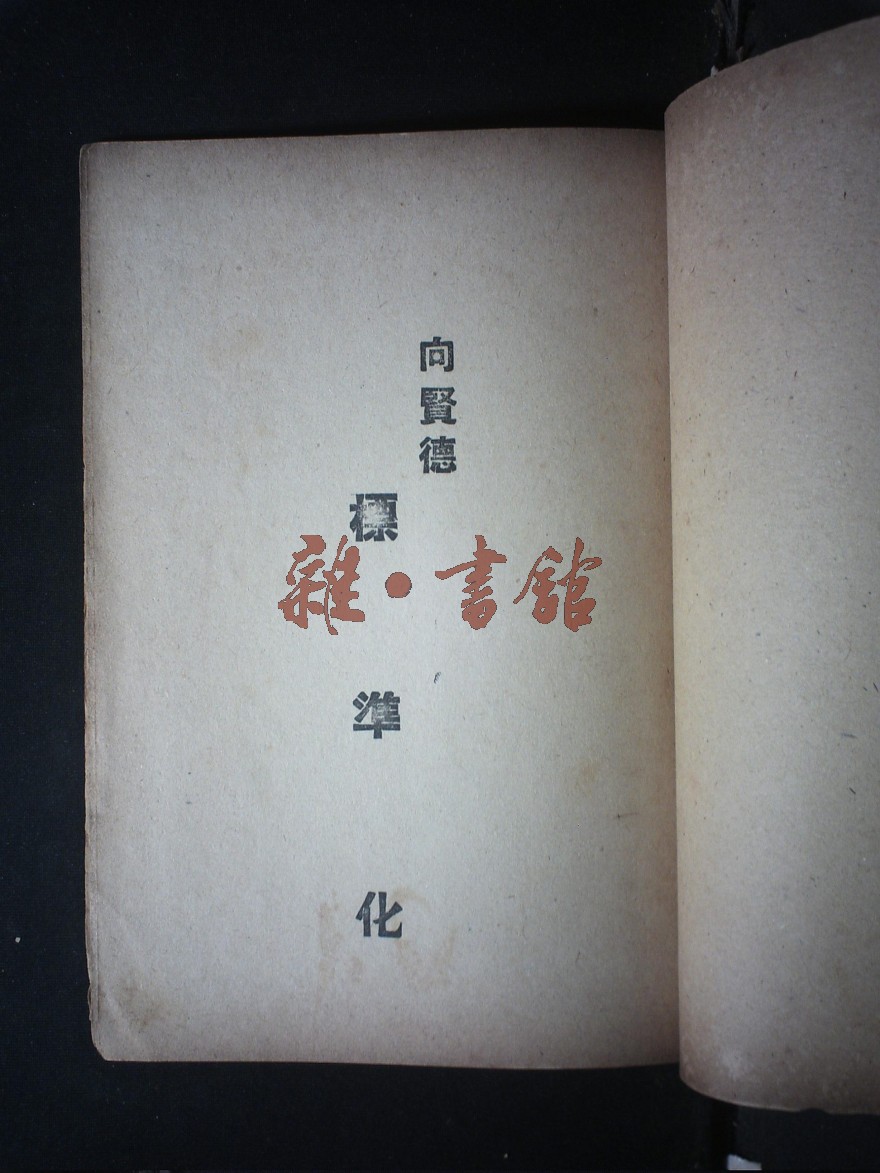 向賢德
標準化
雜·書館